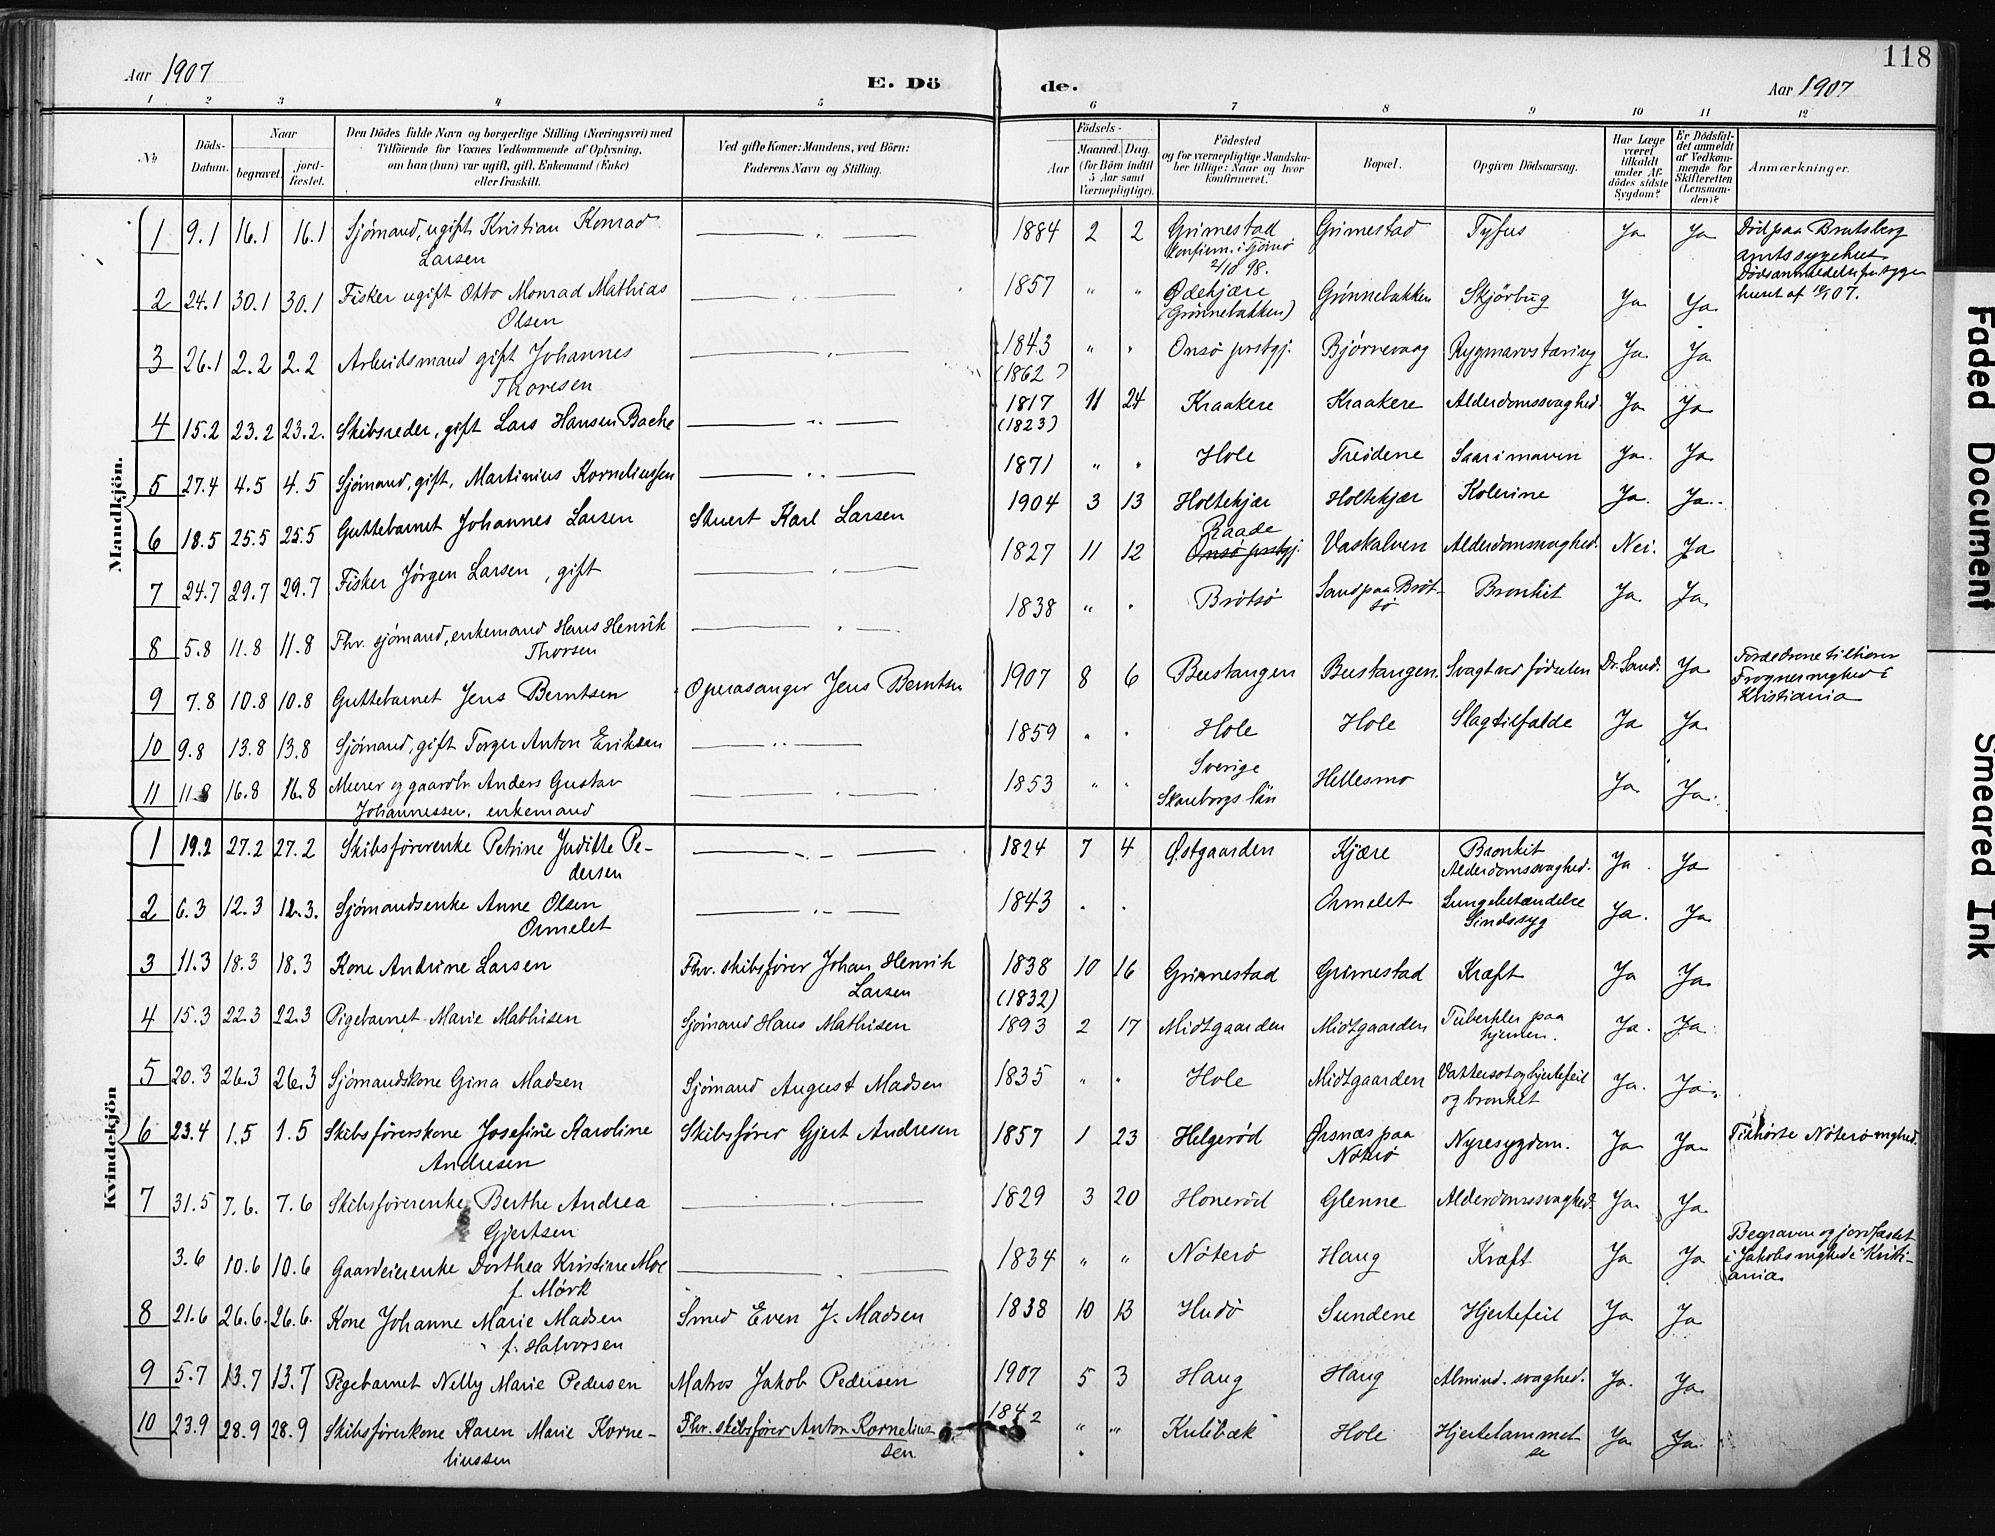 118
Aar 1907
E. Dö
de.
Aar 1907
1 2 3 4 5 6 7 8 9 10 11 12
No
Döds-Datum.
Naar
begravet.
jord-fæstet.
Den Dödes fulde Navn og borgerlige Stilling (Næringsvei) med
Tilföiende for Voxnes Vedkommende af Oplysning,
om han (hun) var ugift, gift, Enkemand (Enke)
eller fraskilt.
Ved gifte Koner: Mandens, ved Börn:
Faderens Navn og Stilling.
Födsels-
Aar
Maaned. Dag.
(for Börn indtil
5 Aar samt
Værnepligtige).
Födested
og for værnepligtige Mandska-
ber tillige: Naar og hvor
konfirmeret.
Bopæl.
Opgiven Dödsaarsag.
Har Læge
været
tilkaldt
under Af-
dödes sidste
Sygdom?
Er Dödsfal-
det anmeldt
af Vedkom-
mende for
Skifteretten
(Lensman-
den)?
Anmærkninger.
Mandkjön.
1 9.1 16.1 16.1 Sjömand, ugift Kristian Konrad
Larsen
1884 2 2 Grimestad Grimestad Tyfus Ja Ja
Konfirm. i Tjömö
2/10 98.
Död paa Bratsberg
amtssygehus.
2 24.1 30.1 30.1 Fisker ugift Otto Monrad Mathias
Olsen
1857 " " Ødekjære
(Grönnebakken) Grönnebakken Skjörbug Ja Ja
3 26.1 2.2 2.2 Arbeidsmand gift Johannes
Thoresen
1843
(1862?) " " Onsö prstgj. Bjørnevaag Rygmarvstæring Ja Ja
4 15.2 23.2 23.2. Skibsreder, gift Lars Hansen Bache
1817
(1823) 11 24 Kraakere Kraakere Alderdomssvaghed. Ja Ja
5 27.4 4.5 4.5 Sjömand, gift, Martinius Korneliussen
1871 " " Hole Treidene Saar i maven Ja. Ja
6 18.5 25.5 25.5 Guttebarnet Johannes Larsen Stuert Karl Larsen
1904 3 13 Holtekjær Holtekjær Kolerine Ja. Ja.
7 24.7 29.7 29.7 Fisker Jörgen Larsen, gift
1827 11 12 Raade
Onsö prstgj. Vaskalven Alderdomssvaghed. Nei. Ja
8 5.8 11.8 11.8 Fhv. sjömand, enkemand Hans Henrik
Thorsen
1838 " " Brötsö Sand paa Bröt-
sö Bronkit Ja Ja.
9 7.8 10.8 10.8 Guttebarnet Jens Berntsen Operasanger Jens Berntsen
1907 8 6 Bustangen Bustangen. Svagt ved födselen Dr. Sand. Ja
Forældrene tilhører
Frogner mghed i
Kristiania
10 9.8 13.8 13.8 Sjömand, gift Torger Anton Eriksen
1859 " " Hole Hole Slagtilfælde Ja Ja
11 11.8 16.8 16.8 Murer og gaardbr Anders Gustav
Johannessen, enkemand
1853 " " Sverige
Skaraborgs län Hellesmo Ja Ja.
Kvindekjön
1 19.2 27.2 27.2 Skibsförerenke Petrine Juditte Pe-
dersen
1824 7 4 Østgaarden Kjære Bronkit
Alderdomssvaghed. Ja Ja
2 6.3 12.3 12.3. Sjömandsenke Anne Olsen
Ormelet
1843 " " Ormelet Lungebetændelse
Sindssyg Ja. Ja
3 11.3 18.3 18.3 Kone Andrine Larsen Fhv. skibsförer Johan Henrik
Larsen
1838
(1832) 10 16 Grimestad Grimestad Kræft Ja Ja
4 15.3 22.3 22.3 Pigebarnet Marie Mathisen Sjömand Hans Mathisen
1893 2 17 Midtgaarden Midtgaarden Tuberkler paa
hjernen. Ja. Ja
5 20.3 26.3 26.3 Sjömandskone Gina Madsen Sjömand August Madsen
1835 " " Hole Midtgaarden Vattersot og hjertefeil
og bronkit Ja. Ja.
6 23.4 1.5 1.5 Skibsförerskone Josefine Karoline
Andresen Skibsförer Gjert Andresen
1857 1 23 Helgeröd Ørsnæs paa
Nöterö Nyresygdom. Ja Ja Tilhørte Nöterö mghed.
7 31.5 7.6. 7.6 Skibsförerenke Berthe Andrea
Gjertsen
1829 3 20 Honeröd Glenne Alderdomssvaghed. Ja Ja
3.6 10.6 10.6 Gaardeierenke Dorthea Kristine Moe
f. Mörk
1834 " " Nöterö Haug Kræft Ja Ja
Begraven og jordfæstet
i Jakobs mghed i Kristi-
ania.
8 21.6 26.6. 26.6. Kone Johanne Marie Madsen
f. Halvorsen Smed Even J. Madsen
1838 10 13 Hudö Sundene Hjertefeil Ja Ja
9 5.7 13.7 13.7 Pigebarnet Nelly Marie Pedersen Matros Jakob Pedersen
1907 5 3 Haug Haug Almind. svaghed. Ja. Ja
10 23.9 28.9 28.9 Skibsförerskone Karen Marie Korne-
liussen Fhv. skibsförer Anton Kornelius-
sen
1842 " " Hole Hjertelammel-
se Ja Ja.
Faded Document
Smeared Ink